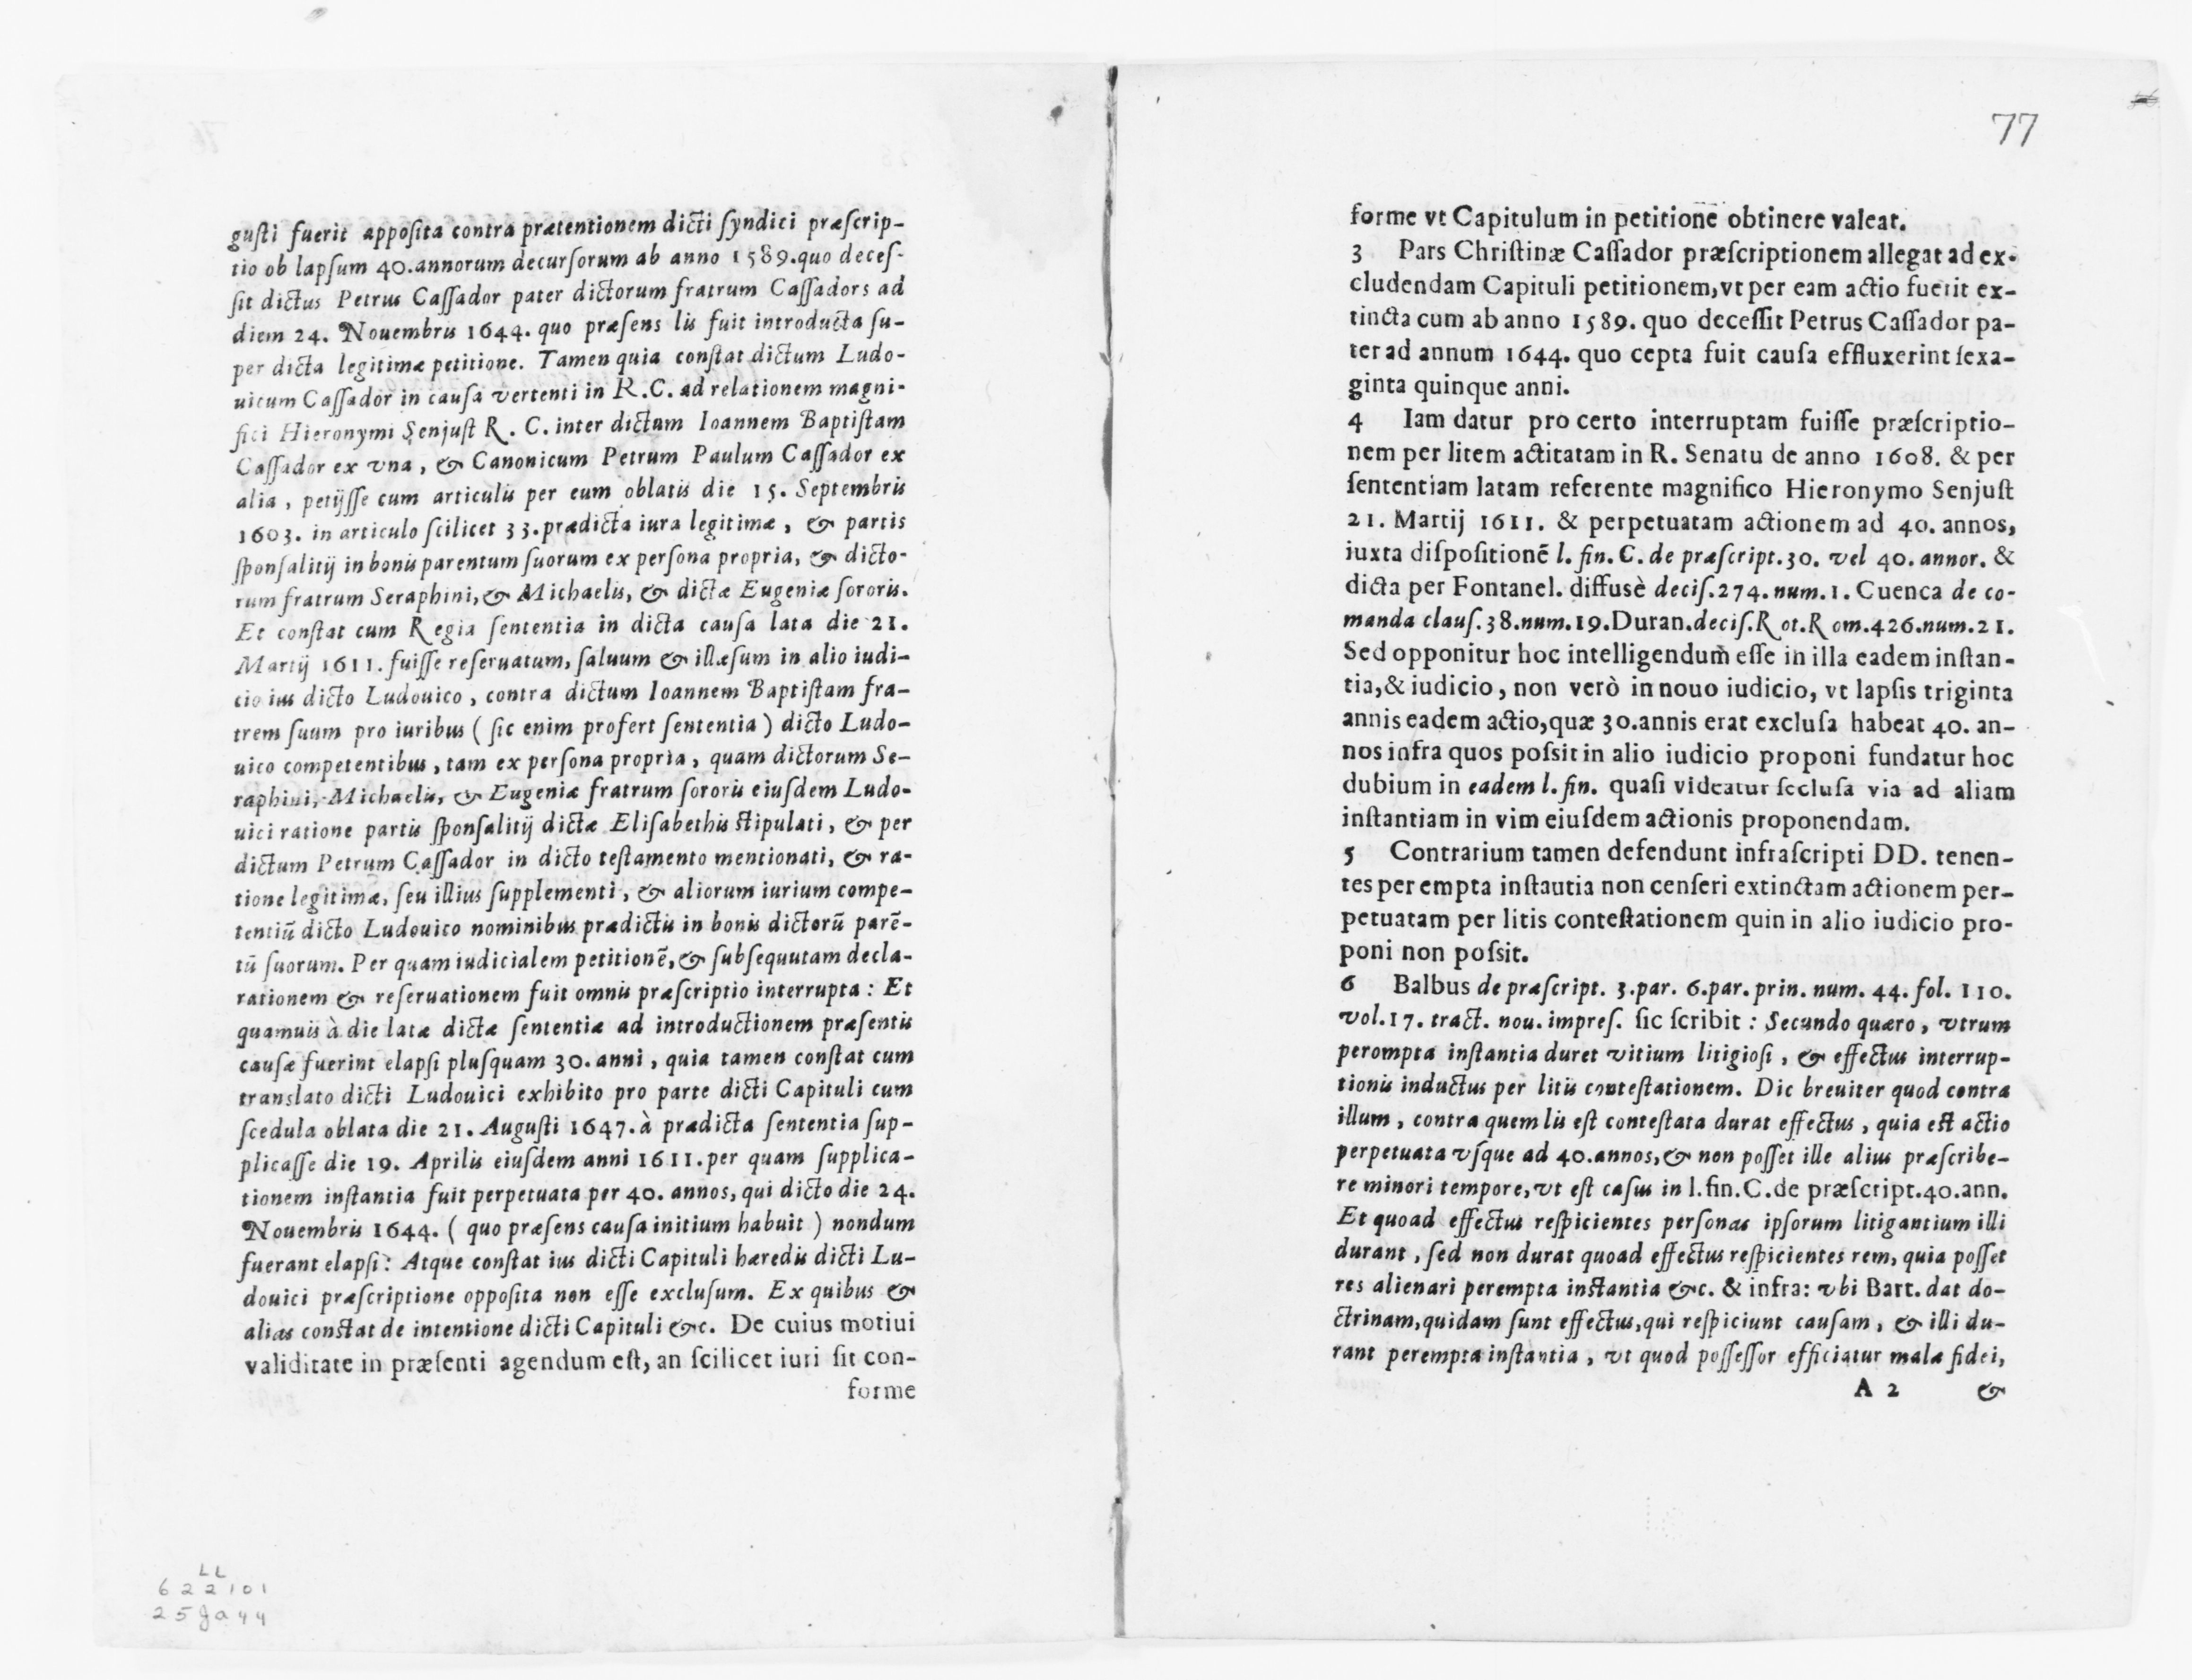 gusti fuerit apposita contra prætentionem dicti syndici præscrip-
tio ob lapsum 40.annorum decursorum ab anno 1589.quo deces-
sit dictus Petrus Cassador pater dictorum fratrum Cassadors ad
diem 24. Nouembris 1644. quo præsens lis fuit introducta su-
per dicta legitimæ petitione. Tamen quia constat dictum Ludo-
uicum Cassador in causa vertenti in R.C. ad relationem magni-
fici Hieronymi Senjust R. C. inter dictum Ioannem Baptistam
Cassador ex vna, & Canonicum Petrum Paulum Cassador ex
alia, petijsse cum articulis per eum oblatis die 15. Septembris
1603. in articulo scilicet 33.prædicta iura legitimæ, & partis
sponsalitij in bonis parentum suorum ex persona propria, & dicto-
rum fratrum Seraphini,& Michaelis, & dictæ Eugeniæ sororis.
Et constat cum Regia sententia in dicta causa lata die 21.
Martij 1611. fuisse reseruatum, saluum & illæsum in alio iudi-
cio ius dicto Ludouico, contra dictum Ioannem Baptistam fra-
trem suum pro iuribus ( sic enim profert sententia ) dicto Ludo-
uico competentibus, tam ex persona propria, quam dictorum Se-
raphini, Michaelis, & Eugeniæ fratrum sororis eiusdem Ludo-
uici ratione partis sponsalitij dictæ Elisabethis stipulati, & per
dictum Petrum Cassador in dicto testamento mentionati, & ra-
tione legitimæ, seu illius supplementi, & aliorum iurium compe-
tentiũ dicto Ludouico nominibus prædictis in bonis dictorũ parẽ-
tũ suorum. Per quam iudicialem petitionẽ,& subsequutam decla-
rationem & reseruationem fuit omnis præscriptio interrupta: Et
quamuis à die latæ dictæ sententiæ ad introductionem præsentis
causæ fuerint elapsi plusquam 30. anni, quia tamen constat cum
translato dicti Ludouici exhibito pro parte dicti Capituli cum
scedula oblata die 21. Augusti 1647. à prædicta sententia sup-
plicasse die 19. Aprilis eiusdem anni 1611.per quam supplica-
tionem instantia fuit perpetuata per 40. annos, qui dicto die 24.
Nouembris 1644. ( quo præsens causa initium habuit ) nondum
fuerant elapsi: Atque constat ius dicti Capituli hæredis dicti Lu-
douici præscriptione opposita non esse exclusum. Ex quibus &
alias constat de intentione dicti Capituli &c. De cuius motiui
validitate in præsenti agendum est, an scilicet iuri sit con-
forme
LL
622101
25Ja44
77
forme vt Capitulum in petitione obtinere valeat.
3 Pars Christinæ Cassador præscriptionem allegat ad ex-
cludendam Capituli petitionem,vt per eam actio fuerit ex-
tincta cum ab anno 1589. quo decessit Petrus Cassador pa-
ter ad annum 1644. quo cepta fuit causa effluxerint sexa-
ginta quinque anni.
4 Iam datur pro certo interruptam fuisse præscriptio-
nem per litem actitatam in R. Senatu de anno 1608. & per
sententiam latam referente magnifico Hieronymo Senjust
21. Martij 1611. & perpetuatam actionem ad 40. annos,
iuxta dispositionẽ l. fin. C. de præscript.30. vel 40. annor. &
dicta per Fontanel. diffusè decis.274. num.1. Cuenca de co-
manda claus.38.num.19.Duran.decis.Rot.Rom.426.num.21.
Sed opponitur hoc intelligendum esse in illa eadem instan-
tia,& iudicio, non verò in nouo iudicio, vt lapsis triginta
annis eadem actio,quæ 30.annis erat exclusa habeat 40. an-
nos infra quos possit in alio iudicio proponi fundatur hoc
dubium in eadem l. fin. quasi videatur seclusa via ad aliam
instantiam in vim eiusdem actionis proponendam.
5 Contrarium tamen defendunt infrascripti DD. tenen-
tes per empta instautia non censeri extinctam actionem per-
petuatam per litis contestationem quin in alio iudicio pro-
poni non possit.
6 Balbus de præscript. 3.par. 6.par.prin. num. 44. fol. 110.
vol.17. tract. nou. impres. sic scribit: Secundo quæro, vtrum
perompta instantia duret vitium litigiosi, & effectus interrup-
tionis inductus per litis contestationem. Dic breuiter quod contra
illum, contra quem lis est contestata durat effectus, quia est actio
perpetuata vsque ad 40.annos,& non posset ille alius præscribe-
re minori tempore, vt est casus in l.fin.C.de præscript.40.ann.
Et quoad effectus respicientes personas ipsorum litigantium illi
durant, sed non durat quoad effectus respicientes rem, quia posset
res alienari perempta instantia &c. & infra: vbi Bart. dat do-
ctrinam,quidam sunt effectus,qui respiciunt causam, & illi du-
rant perempta instantia, vt quod possessor efficiatur mala fidei,
A 2 &